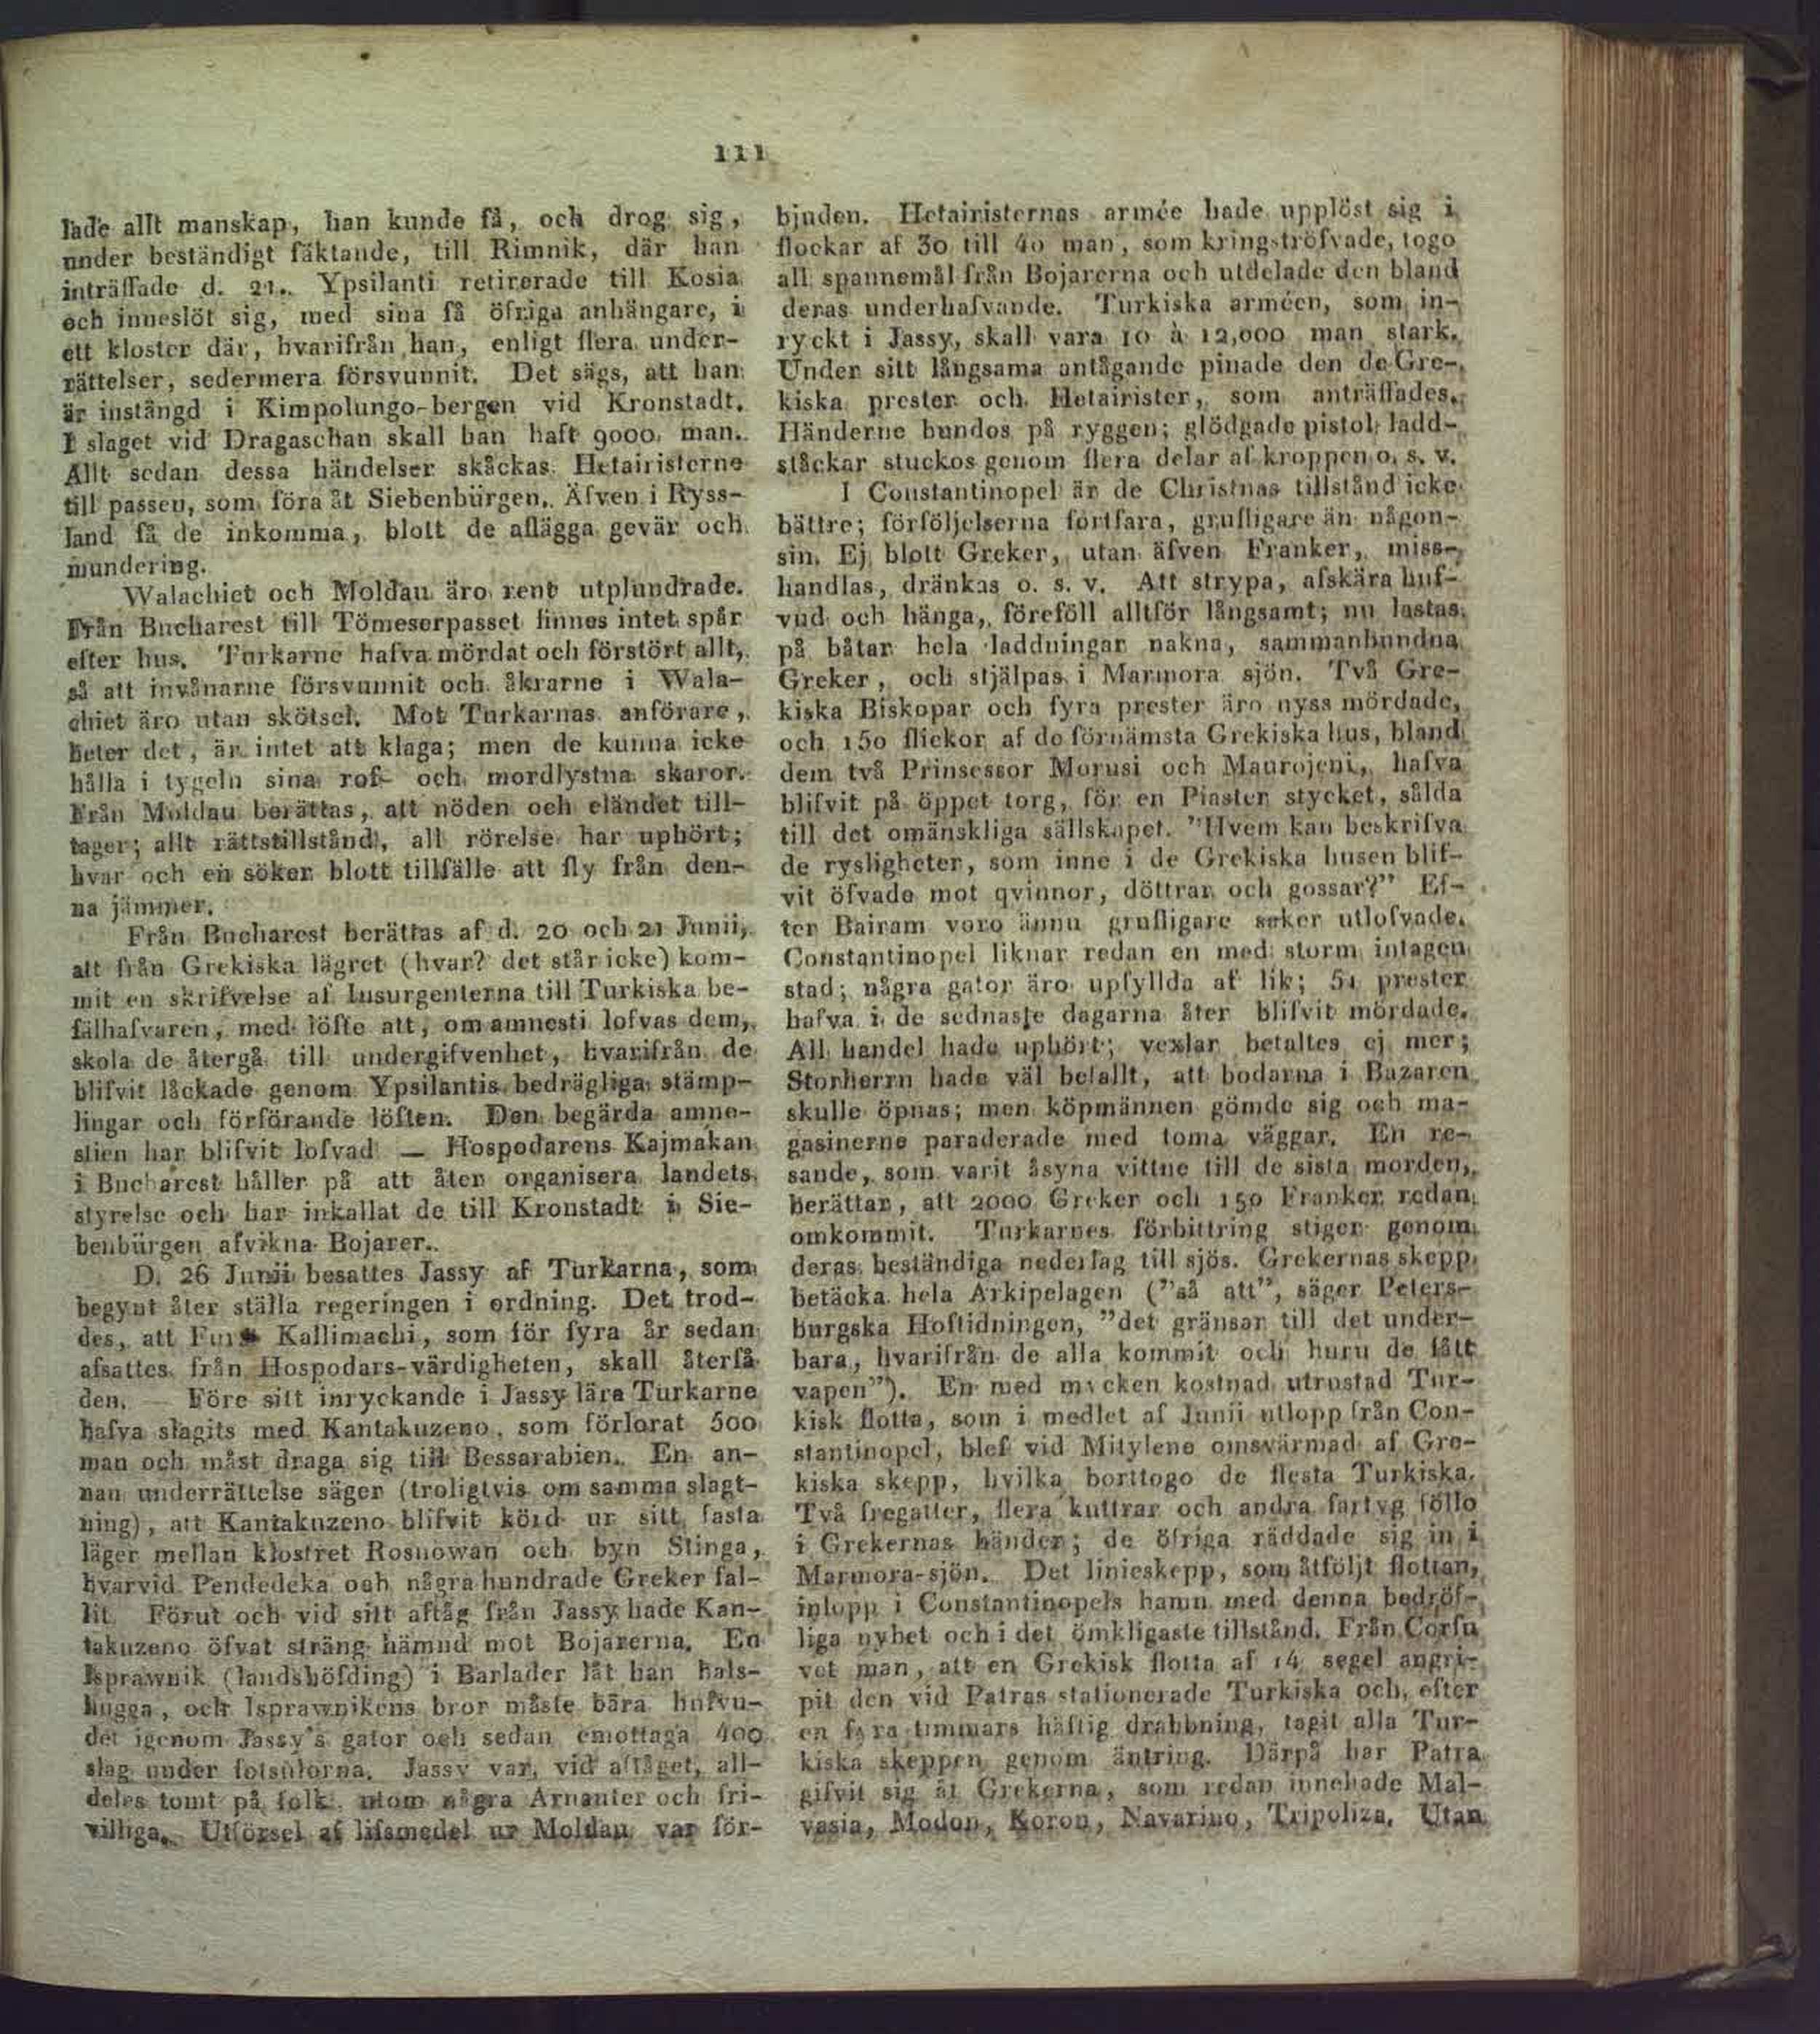 111
lade allt manskap, han kunde få, och drog sig,
under beständigt fäktande, till Rimnik, där han
inträffade d. 21. Ypsilanti retirerade till Kosia
och inneslöt sig, med sina få öfriga anhängare, i
ett kloster där, hvarifrån han, enligt flera under-
rättelser, sedermera försvunnit. Det sägs, att han
är instängd i Kimpolungo-bergen vid Kronstadt.
I slaget vid Dragaschan skall han haft 9000 man.
Allt sedan dessa händelser skåckas Hetairisterne
till passen, som föra åt Siebenbürgen. Äfven i Ryss-
land få de inkomma, blott de aflägga gevär och
mundering.
Walachiet och Moldau äro rent utplundrade.
Från Bucharest till Tömeserpasset finnes intet spår
efter hus. Turkarne hafva mördat och förstört allt,
så att invånarne försvunnit och åkrarne i Wala-
chiet äro utan skötsel. Mot Turkarnas anförare,
heter det, är intet att klaga; men de kunna icke
hålla i tygeln sina rof- och mordlystna skaror.
Från Moldau berättas, att nöden och eländet till-
tager; allt rättstillstånd, all rörelse har uphört;
hvar och en söker blott tillfälle att fly från den-
na jämmer.
Från Bucharest berättas af d. 20 och 21 Junii,
att från Grekiska lägret (hvar? det står icke) kom-
mit en skrifvelse af Insurgenterna till Turkiska be-
fälhafvaren, med löfte att, om amnesti lofvas dem,
skola de återgå till undergifvenhet, hvarifrån de
blifvit låckade genom Ypsilantis bedrägliga stämp-
lingar och förförande löften. Den begärda amne-
stien har blifvit lofvad — Hospodarens Kajmakan
i Bucharest håller på att åter organisera landets
styrelse och har inkallat de till Kronstadt i Sie-
benbürgen afvikna Bojarer.
D. 26 Junii besattes Jassy af Turkarna, som
begynt åter ställa regeringen i ordning. Det trod-
des, att Furst Kallimachi, som för fyra år sedan
afsattes från Hospodars-värdigheten, skall återfå
den. — Före sitt inryckande i Jassy lära Turkarne
hafva slagits med Kantakuzeno, som förlorat 500
man och måst draga sig till Bessarabien. En an-
nan underrättelse säger (troligtvis om samma slagt-
ning), att Kantakuzeno blifvit körd ur sitt fasta
läger mellan klostret Rosnowan och byn Stinga,
hvarvid Pendedeka och några hundrade Greker fal-
lit. Förut och vid sitt aftåg från Jassy hade Kan-
takuzeno öfvat sträng hämnd mot Bojarerna. En
Isprawnik (landshöfding) i Barlader lät han hals-
hugga, och Isprawnikens bror måste bära hufvu-
det igenom Jassy's gator och sedan emottaga 400
slag under fotsulorna. Jassy var, vid aftåget, all-
deles tomt på folk, utom några Arnauter och fri-
villiga. Utförsel af lifsmedel ur Moldau var för-
bjuden. Hetairisternas armée hade upplöst sig i
flockar af 30 till 40 man, som kringströfvade, togo
all spannemål från Bojarerna och utdelade den bland
deras underhafvande. Turkiska arméen, som in-
ryckt i Jassy, skall vara 10 à 12,000 man stark.
Under sitt långsamma antågande pinade den de Gre-
kiska prester och Hetairister, som anträffades.
Händerne bundos på ryggen; glödgade pistol-ladd-
ståckar stuckos genom flera delar af kroppen o. s. v.
I Constantinopel är de Christnas tillstånd icke
bättre; förföljelserna fortfara, grufligare än någon-
sin. Ej blott Greker, utan äfven Franker, miss-
handlas, dränkas o. s. v. Att strypa, afskära huf-
vud och hänga, föreföll alltför långsamt; nu lastas
på båtar hela laddningar nakna, sammanbundna
Greker, och stjälpas i Marmora sjön. Två Gre-
kiska Biskopar och fyra prester äro nyss mördade,
och 150 flickor af de förnämsta Grekiska hus, bland
dem två Prinsessor Morusi och Maurojeni, hafva
blifvit på öppet torg, för en Piaster stycket, sålda
till det omänskliga sällskapet. "Hvem kan beskrifva
de rysligheter, som inne i de Grekiska husen blif-
vit öfvade mot qvinnor, döttrar och gossar?" Ef-
ter Bairam voro ännu grufligare saker utlofvade.
Constantinopel liknar redan en med storm intagen
stad; några gator äro upfyllda af lik; 51 prester
hafva i de sednaste dagarna åter blifvit mördade.
All handel hade uphört; vexlar betaltes ej mer;
Storherrn hade väl befallt, att bodarna i Bazaren
skulle öpnas; men köpmännen gömde sig och ma-
gasinerne paraderade med toma väggar. En re-
sande, som varit åsyna vittne till de sista morden,
berättar, att 2000 Greker och 150 Franker redan
omkommit. Turkarnes förbittring stiger genom
deras beständiga nederlag till sjös. Grekernas skepp
betäcka hela Arkipelagen ("så att", säger Peters-
burgska Hoftidningen, "det gränsar till det under-
bara, hvarifrån de alla kommit och huru de fått
vapen"). En med mycken kostnad utrustad Tur-
kisk flotta, som i medlet af Junii utlopp från Con-
stantinopel, blef vid Mitylene omsvärmad af Gre-
kiska skepp, hvilka borttogo de flesta Turkiska.
Två fregatter, flera kuttrar och andra fartyg föllo
i Grekernas händer; de öfriga räddade sig in i
Marmora-sjön. Det linieskepp, som åtföljt flottan,
inlopp i Constantinopels hamn med denna bedröf-
liga nyhet och i det ömkligaste tillstånd. Från Corfu
vet man, att en Grekisk flotta af 14 segel angri-
pit den vid Patras stationerade Turkiska och, efter
en fyra timmars häftig drabbning, tagit alla Tur-
kiska skeppen genom äntring. Därpå har Patra
gifvit sig åt Grekerna, som redan innehade Mal-
vasia, Modon, Koron, Navarino, Tripoliza. Utan